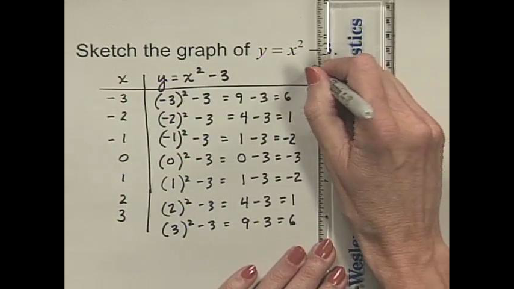 Sketch the graph of y = x² −
x y = x² − 3
−3 (−3)² − 3 = 9 − 3 = 6
−2 (−2)² − 3 = 4 − 3 = 1
−1 (−1)² − 3 = 1 − 3 = −2
0 (0)² − 3 = 0 − 3 = −3
1 (1)² − 3 = 1 − 3 = −2
2 (2)² − 3 = 4 − 3 = 1
3 (3)² − 3 = 9 − 3 = 6